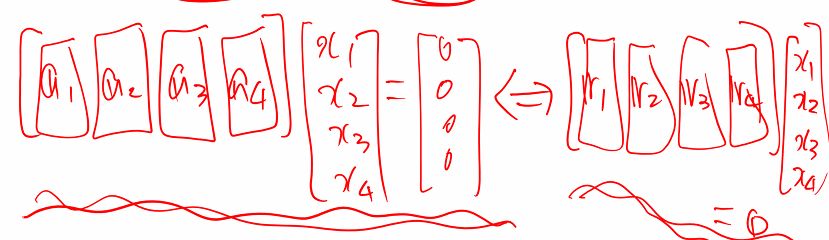 [a₁ a₂ a₃ a₄] [x₁ x₂ x₃ x₄] = [0 0 0 0] ⇔ [r₁ r₂ r₃ r₄] [x₁ x₂ x₃ x₄]
= 0